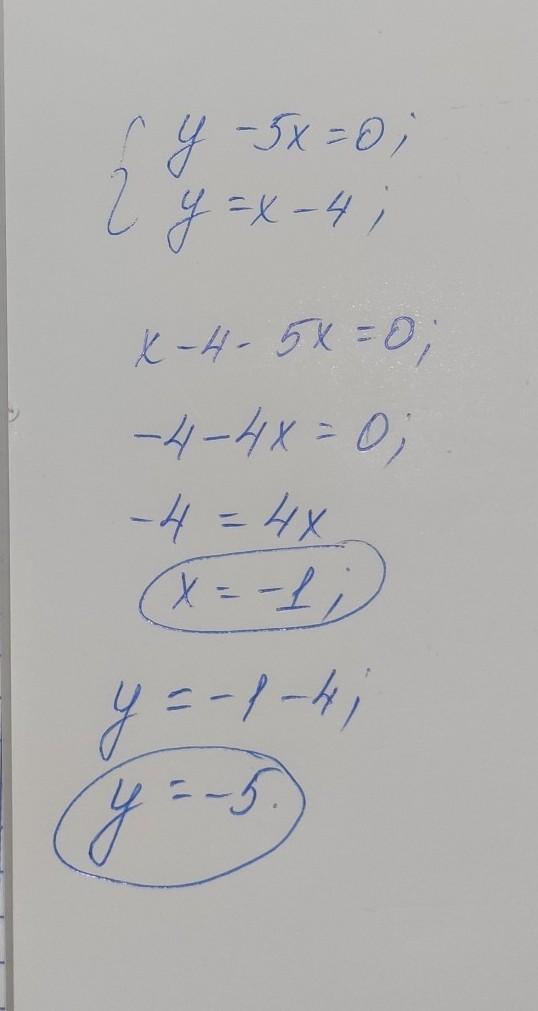 { y - 5x = 0;
y = x - 4;
x - 4 - 5x = 0;
-4 - 4x = 0;
-4 = 4x
x = -1;
y = -1 - 4;
y = -5.